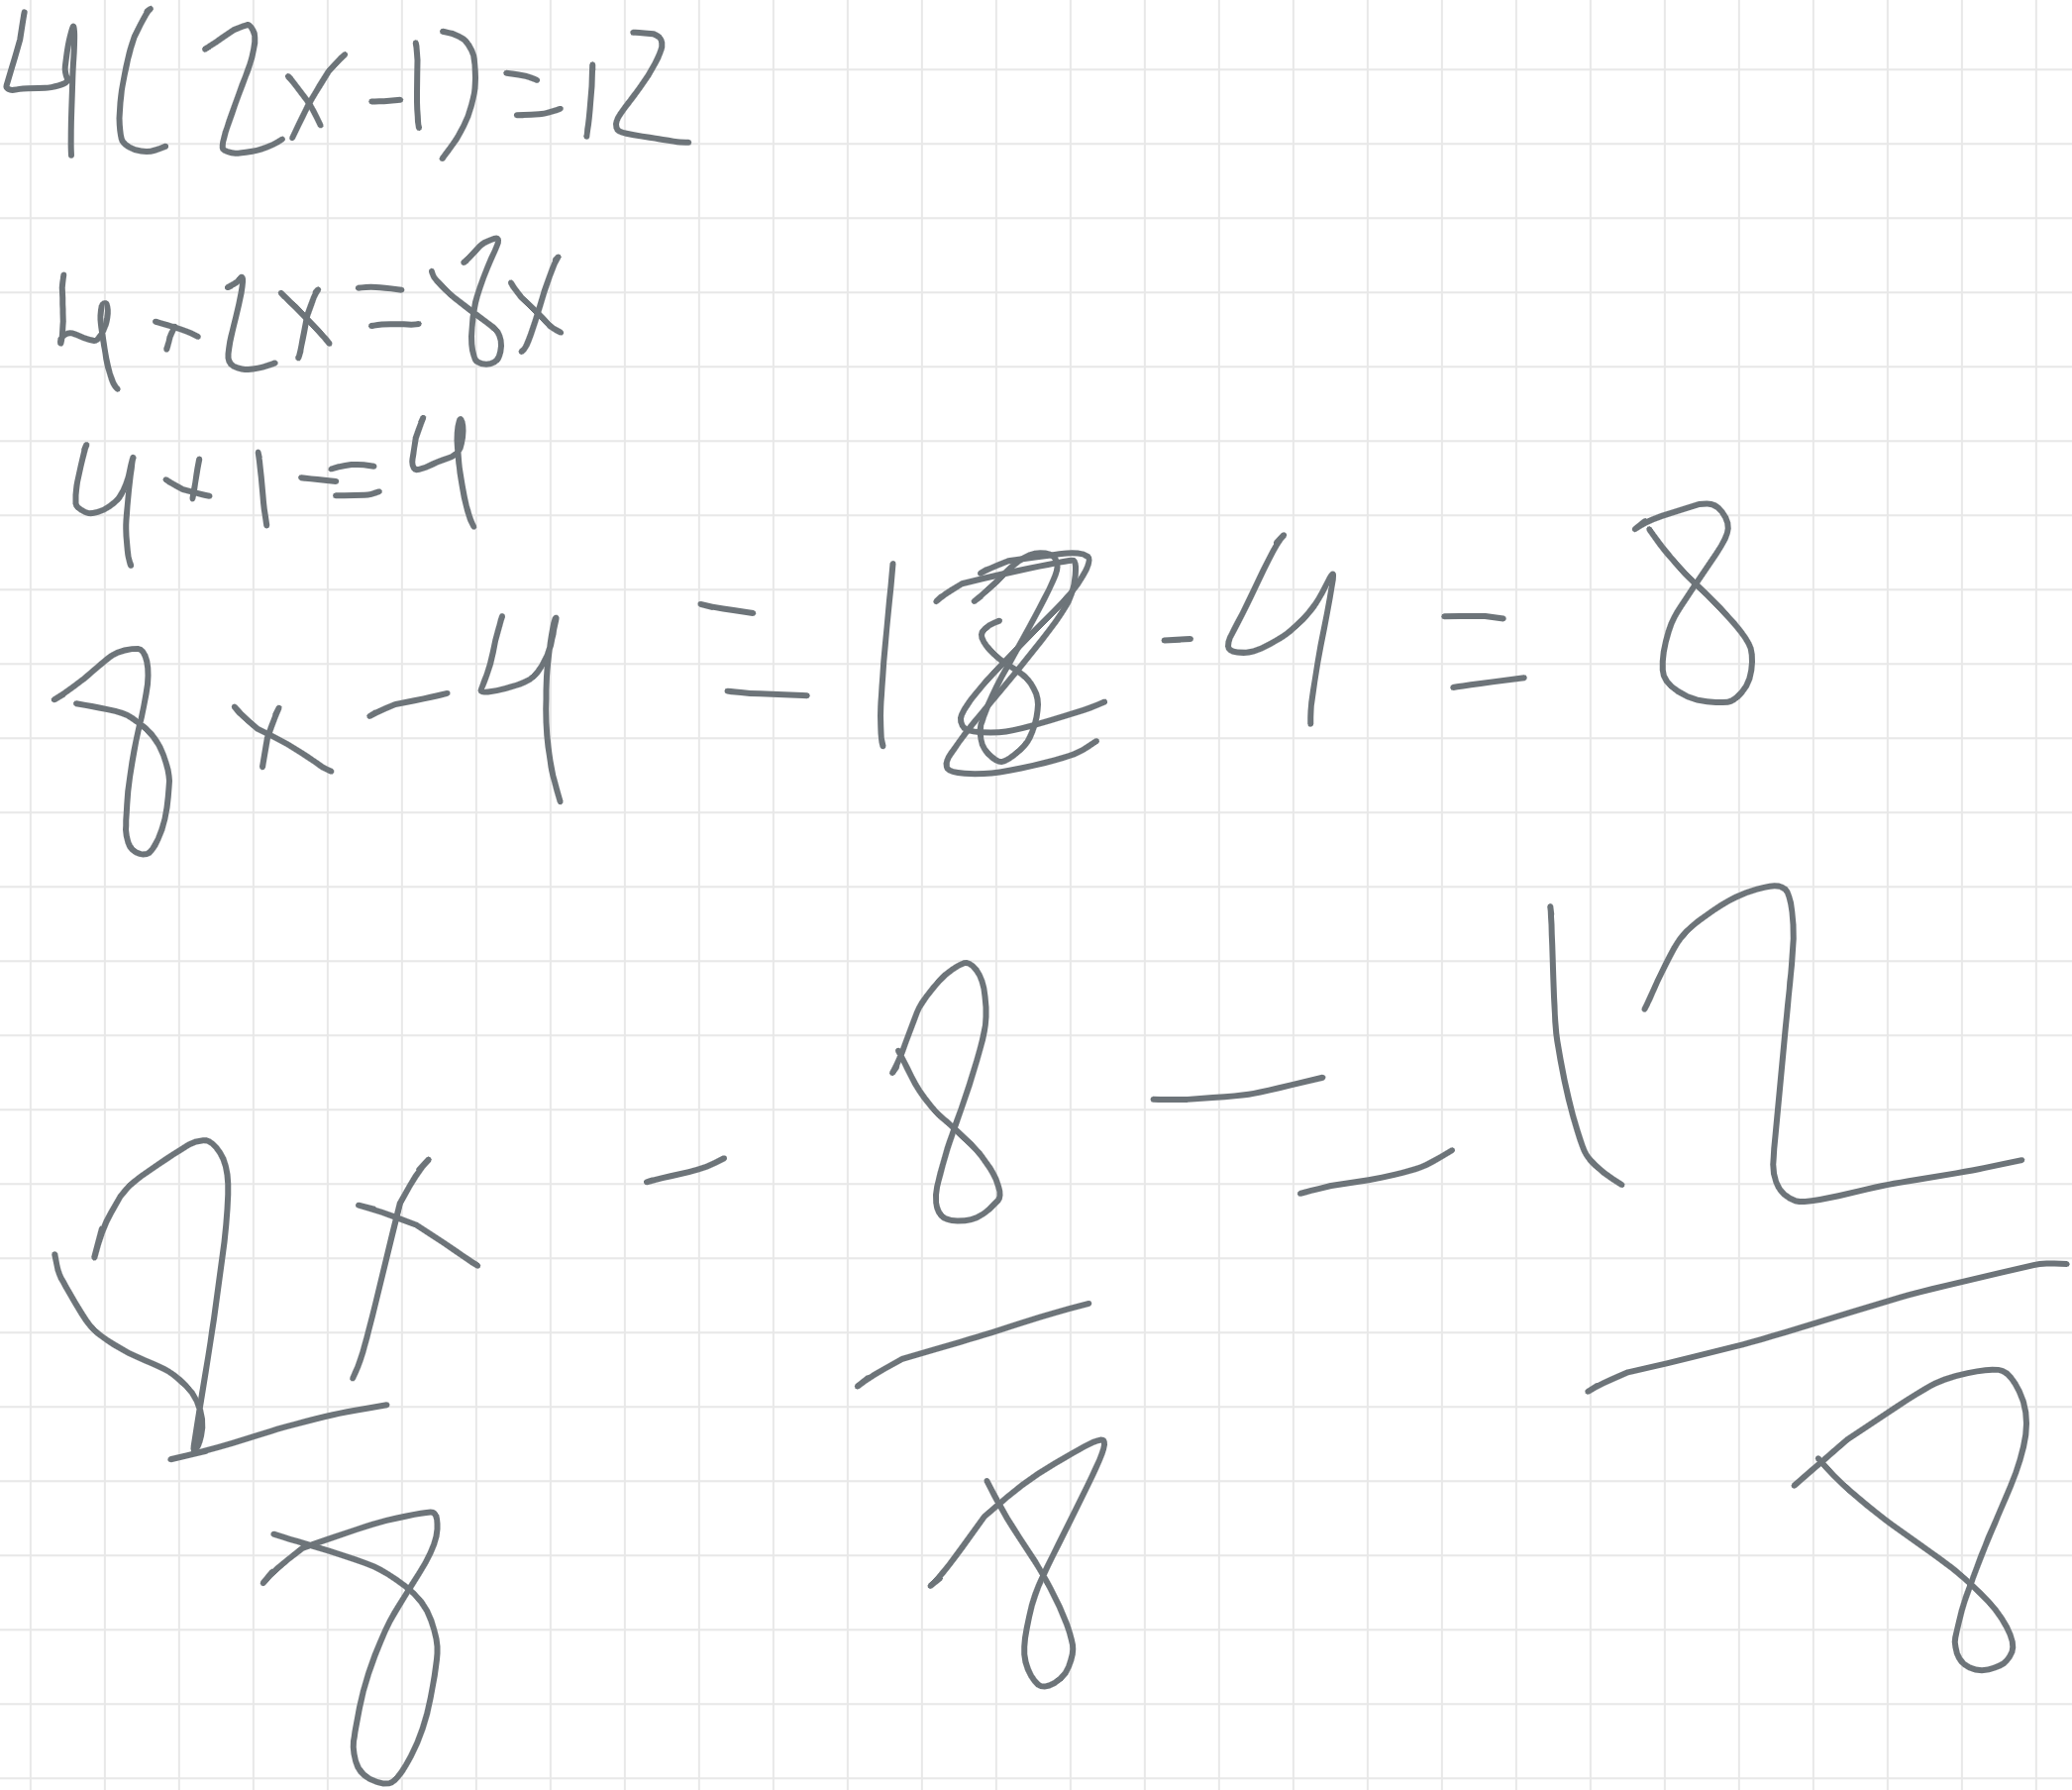 4(2x-1)=12
4x2x=8x
4x1==4
8x-4=12-4=8
8x-8=12
8 8 8